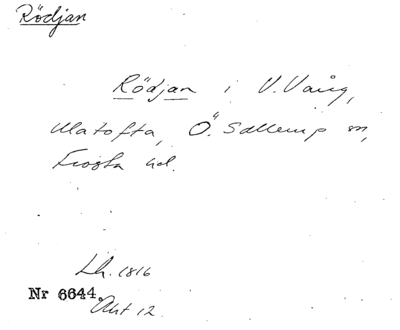 Rödjan
Rödjan i V. Vång,
Ulatofta, Ö. Sallerup sn,
Frosta hd.
Lh. 1816
Nr 6644. Akt 12.